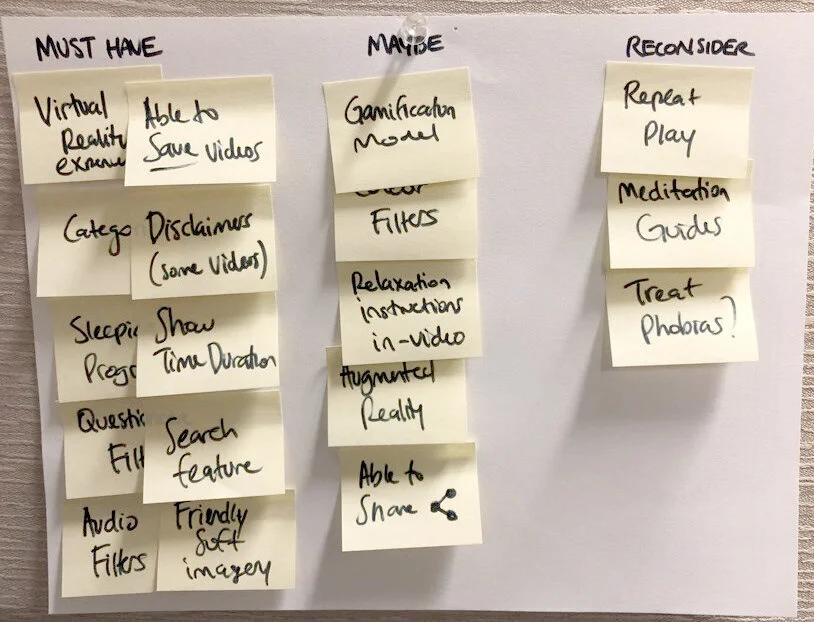 MUST HAVE
Virtual
Reality
Able to
Save Videos
Catego
Disclaimers
(some Videos)
Sleepin
Progr
Show
Time Duration
Questio
Filt
Search
feature
Audio
Filters
Friendly
Soft
imagery
MAYBE
Gamification
Model
Filters
Relaxation
instructions
in-video
Augmented
Reality
Able to
Share
RECONSIDER
Repeat
Play
Meditation
Guides
Treat
Phobias?